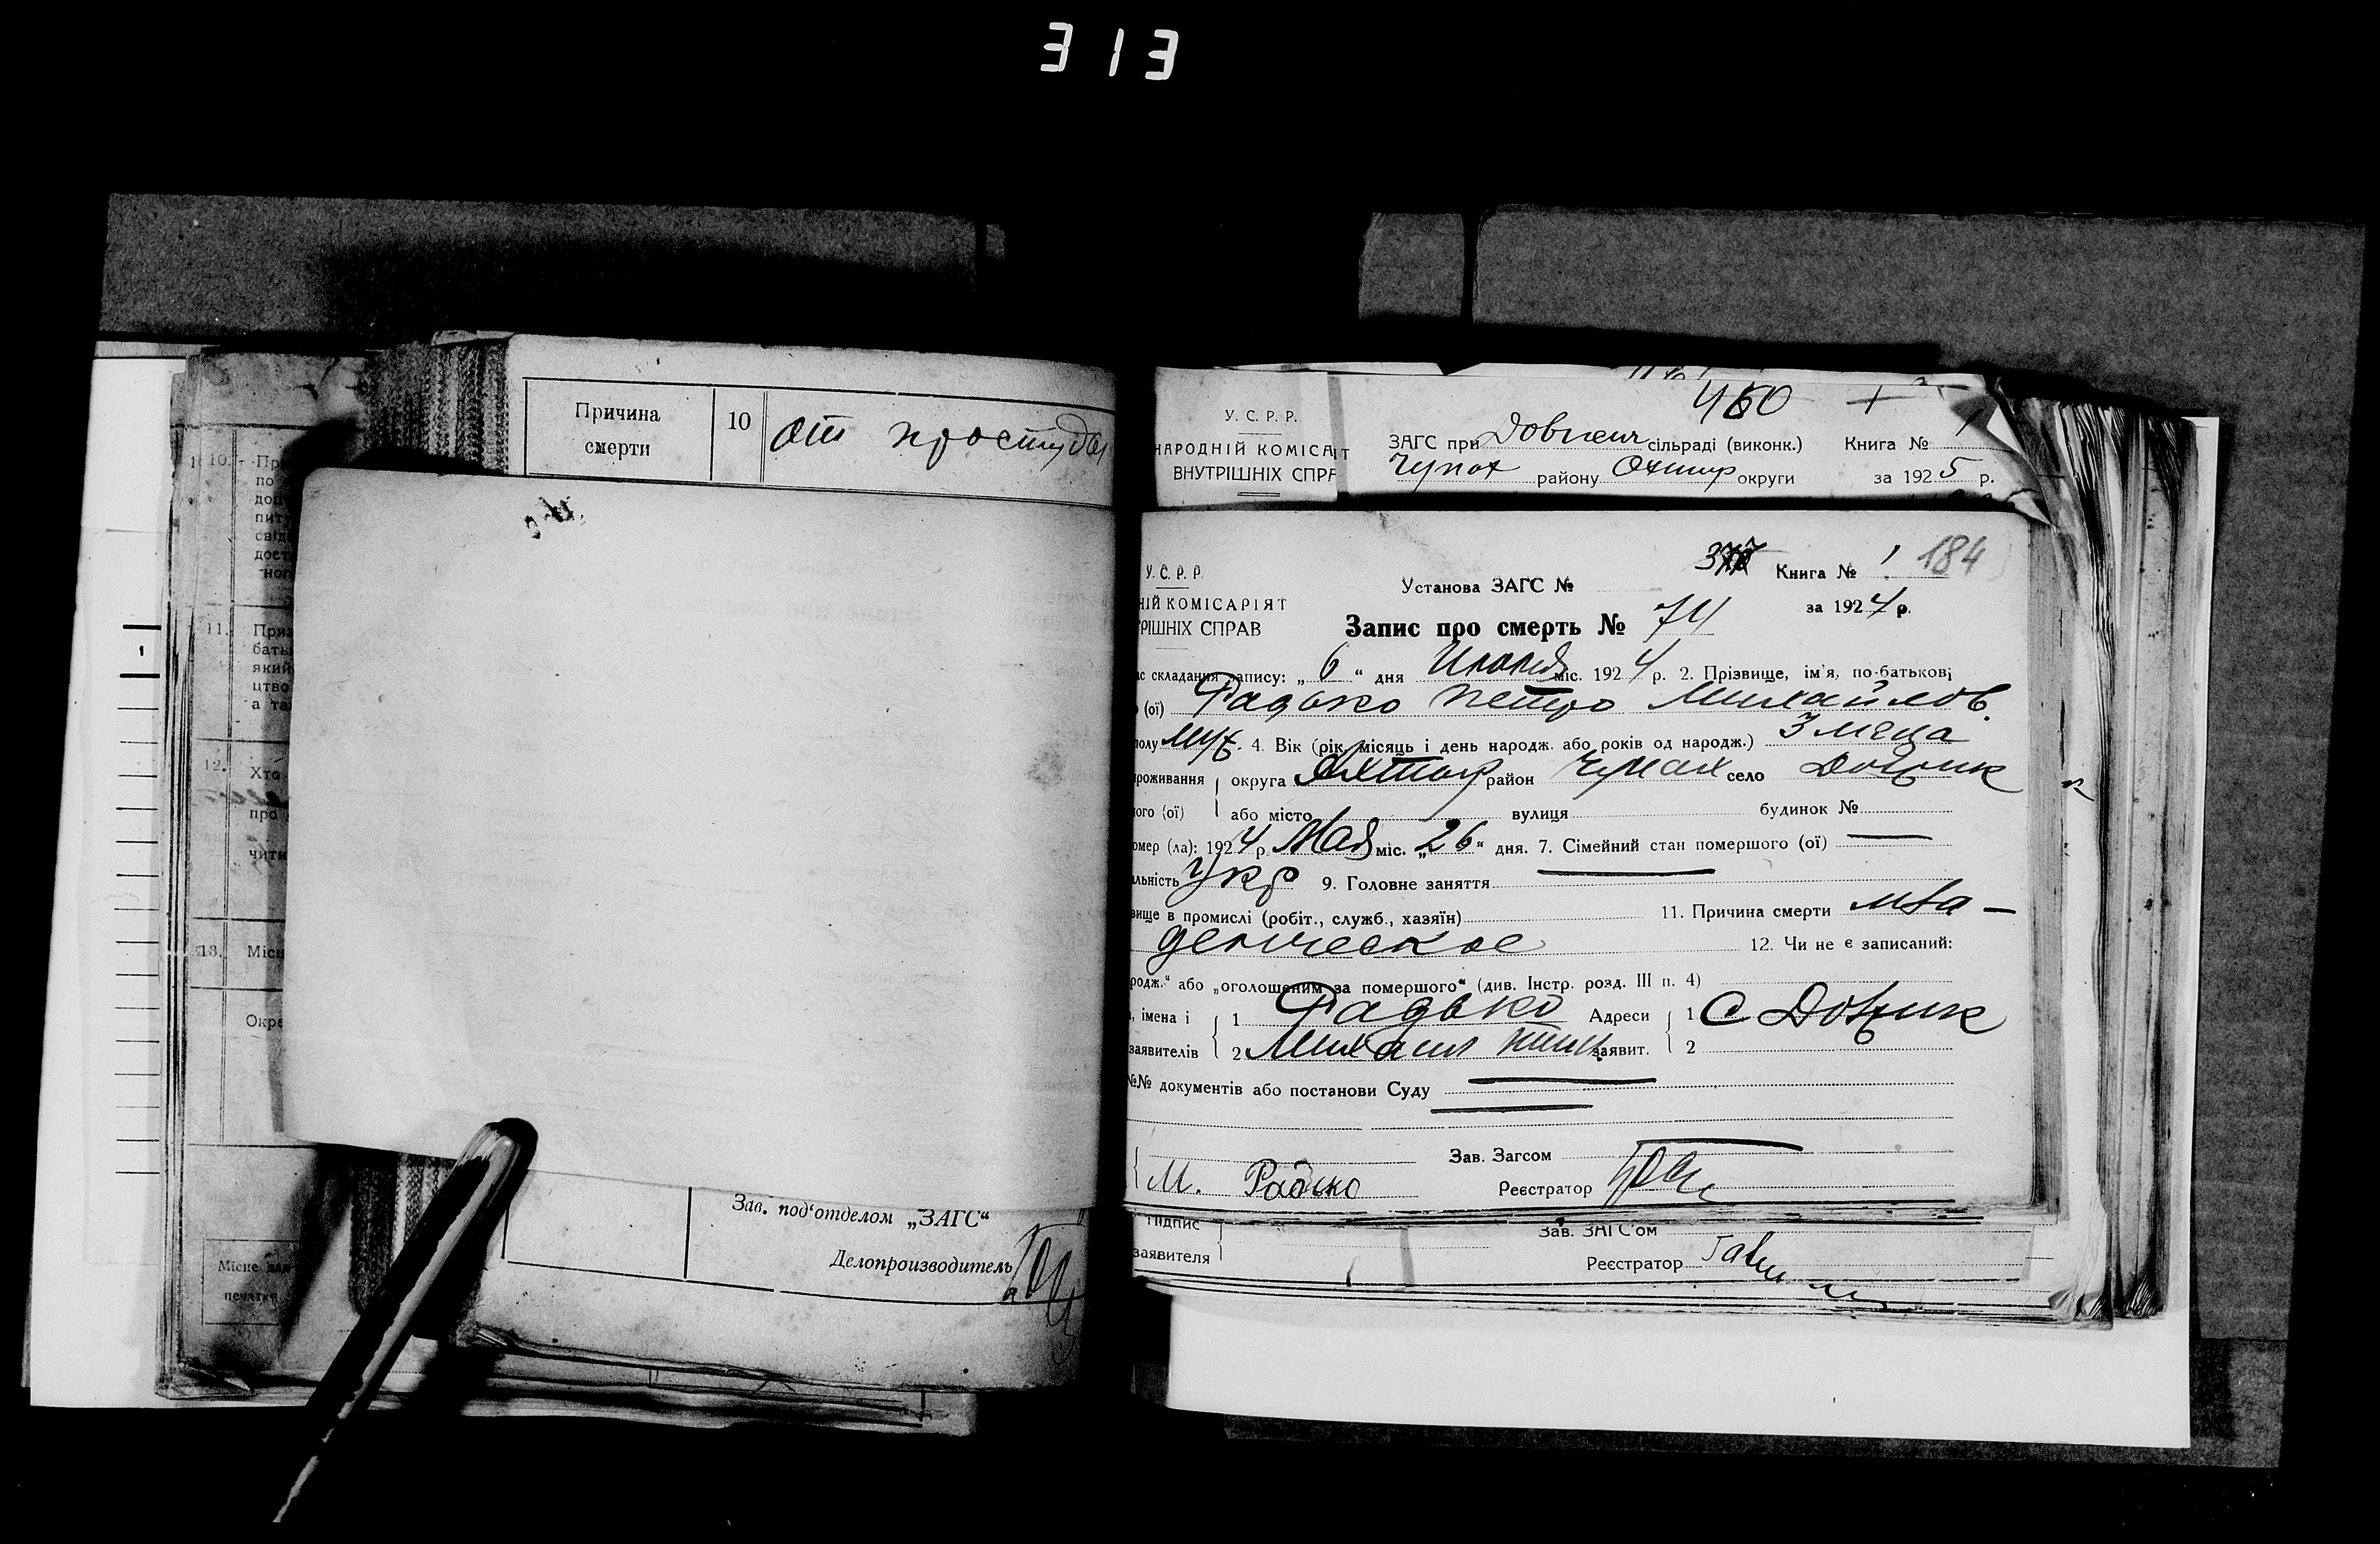 313
Причина
смерти
10
от простуды
10.
11.
12.
Хто
про
чити
13.
Окре
Місце
печатки
1
Зав. под‘отделом „ЗАГС“
Делопроизводитель
460
У. С. Р. Р.
НАРОДНІЙ КОМІСА
ВНУТРІШНІХ СПР
ЗАГС при сільраді (виконк.) Книга № 1
Чупах району Охтир округи за 1925 р.
У. С. Р. Р.
НІЙ КОМІСАРІЯТ
РІШНІХ СПРАВ
Установа ЗАГС № Книга № 1 184
за 1924 р.
Запис про смерть № 74
ас складання запису: „ 6 “ дня міс. 1924 р. 2. Прізвище, ім'я, по-батькові
(ої) Радько Петро Михайлов.
полу муж. 4. Вік (рік, місяць і день народж. або років од народж.) 3 м-ца
роживання округа Ахтыр район Чупах село Довжик
ого (ої) або місто вулиця будинок №
омер (ла): 1924 р. Мая міс. „26“ дня. 7. Сімейний стан помершого (ої) —
альність Укр 9. Головне заняття —
вище в промислі (робіт., служб., хазяїн) 11. Причина смерти мла-
денческое 12. Чи не є записаний:
родж.“ або „оголошеним за помершого“ (див. Інстр. розд. III п. 4)
, імена і 1 Радько Адреси 1 С Довжик
заявителів 2 Михаил заявит. 2
№№ документів або постанови Суду —
Зав. Загсом —
М. Радько Реєстратор
Підпис Зав. ЗАГС'ом
заявителя Реєстратор